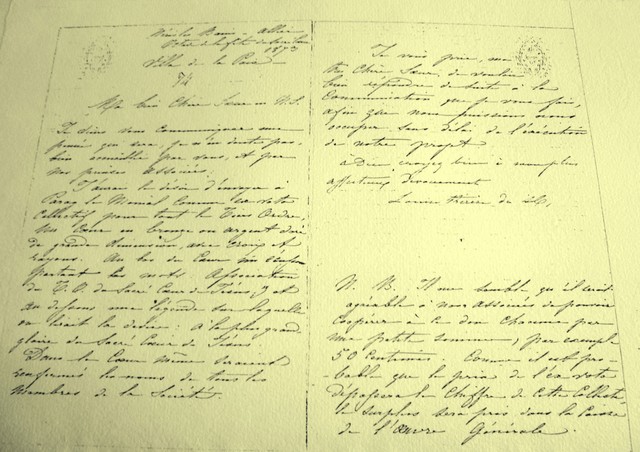 Octave de la fête du Sacré Cœur
1873
Villa de la Paix
Ma bien Chère Sœur en N. S.
Je viens vous communiquer une
pensée qui sera, je n'en doute pas,
bien accueillie par vous, et par
nos pieuses Associées.
J'aurais le désir d'envoyer à
Paray le Monial comme ex-voto
Collectif pour tout le Tiers Ordre,
un Cœur en bronze ou argent doré
de grande dimension, avec Croix et
rayons. Au bas du Cœur
portant les mots: Association
du T. O. du Sacré Cœur de Jésus, et
au dessous une légende sur laquelle
on lirait la devise: A la plus grande
gloire du Sacré Cœur de Jésus.
Dans le Cœur même seraient
renfermés les noms de tous les
Membres de la Société.
Je vous prie, ma
Chère Sœur, de vouloir
bien répondre de suite à la
Communication que je vous fais,
afin que nous puissions nous
occuper sans délai de l'exécution
de notre projet.
à Dieu croyez bien à mon plus
affectueux dévouement
Louise Thérèse de
N. B. Il me semble qu'il serait
agréable à nos Associés de pouvoir
coopérer à ce don chacune par
une petite somme, par exemple
50 Centimes. Comme il est pro-
bable que le prix de l'ex voto
dépassera le Chiffre de Cette Collecte,
le surplus sera pris dans la Caisse
de l'Œuvre Générale.